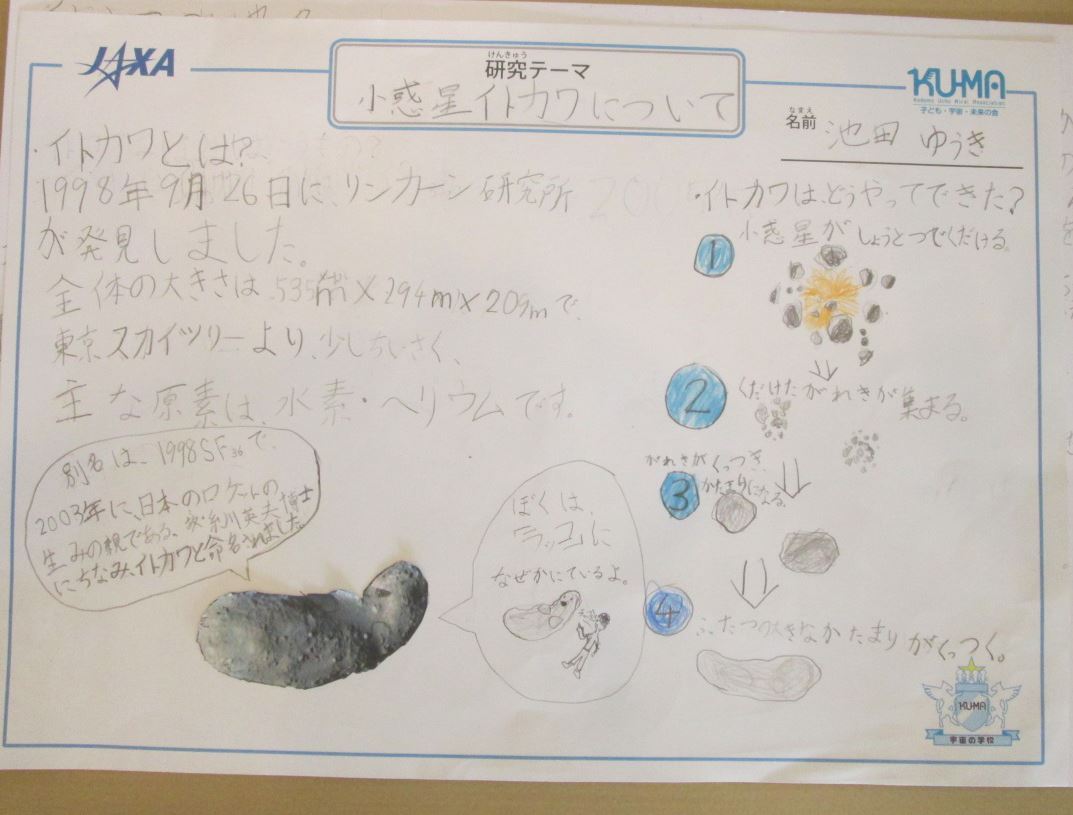 JAXA
けんきゅう
研究テーマ
小惑星イトカワについて
KU-MA
Kodomo Uchu Mirai Association
子ども・宇宙・未来の会
なまえ
名前
池田 ゆうき
・イトカワとは?
1998年9月26日に、リンカーン研究所
が発見しました。
全体の大きさは、535m×294m×209mで、
東京スカイツリーより、少しちいさく、
主な原素は、水素・ヘリウムです。
別名は、1998SF36で、
2003年に、日本のロケットの
生みの親である、糸川英夫博士
にちなみ、イトカワと命名されました。
ぼくは、
ラッコに
なぜかにているよ。
・イトカワは、どうやってできた?
1
小惑星がしょうとつでくだける。
2
くだけたがれきが集まる。
がれきがくっつき、
3
かたまりになる。
4
ふたつの大きなかたまりがくっつく。
KU-MA
宇宙の学校